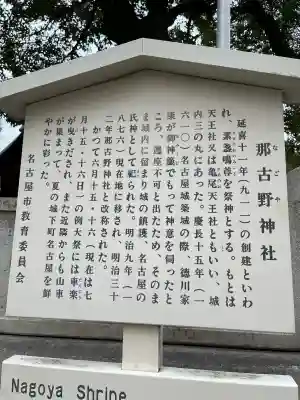 那古野神社
なごや
延喜十一年(九一一)の創建といわ
れ、素盞嗚尊を祭神とする。もとは
天王社又は亀尾天王社ともいい、城
内三の丸にあった。慶長十五年(一
六一〇)名古屋城築城の際、徳川家
康が御神籤でもって神意を伺ったと
ころ、遷座不可と出たため、そのま
ま城内に留まり城の鎮護、名古屋の
氏神として祀られた。明治九年(一
八七六)現在地に移され、明治三十
二年那古野神社と改称された。
かつて六月十五・十六(現在は七
月十五・十六日)の例大祭には車楽
が曳きだされ、また近隣からも山車
が集まって、夏の城下町名古屋を鮮
やかに彩った。
名古屋市教育委員会
Nagoya Shrine